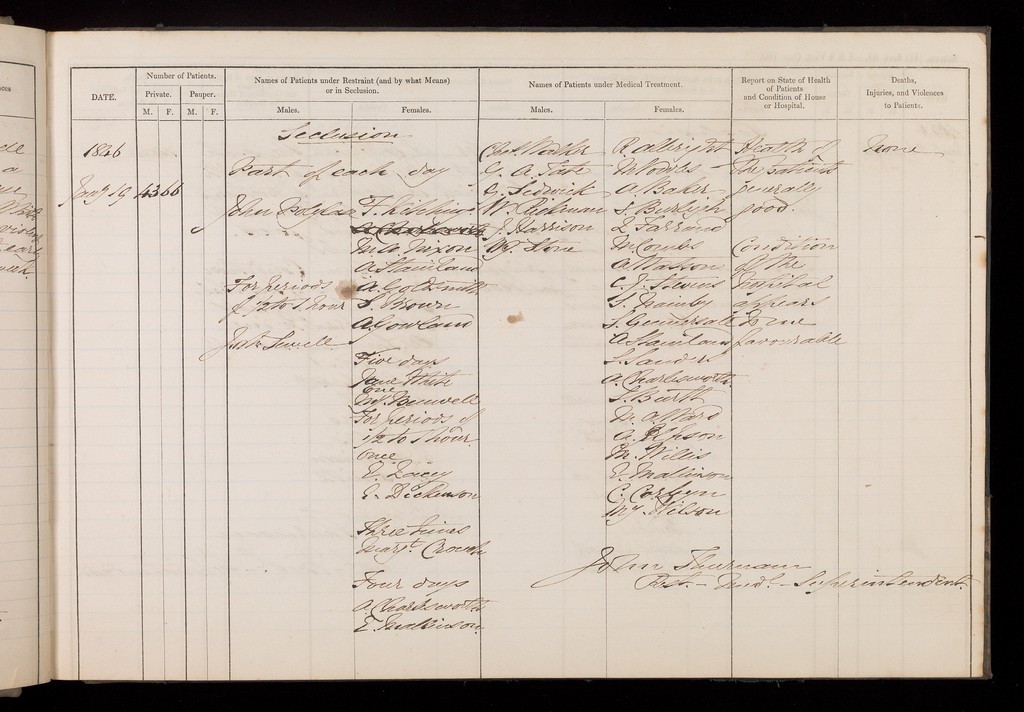 DATE.
Number of Patients.
Private.
Pauper.
M. F. M. F.
Names of Patients under Restraint (and by what Means)
or in Seclusion.
Males. Females.
Names of Patients under Medical Treatment.
Males. Females.
Report on State of Health
of Patients
and Condition of House
or Hospital.
Deaths,
Injuries, and Violences
to Patients.
1846
Jany 19 43 66
Seclusion
Part of each day
John
For periods
of 1/2 to 1 hour
Josh Sewell
F. Kipping
M. A. Nixon
A. Stainland
A. Goldsmith
S. Brown
A. Gowland
Five days
Jane White
One
My Benwell
For periods of
1/2 to 1 hour
Once
E. Lacey
E. Dickinson
Three times
Margt. Crouch
Four days
A. Charlesworth
E. Mallinson
Chas. Walker
G. A. Tate
C. Sedwick
W. Rickman
J. Harrison
Wm. Stone
R. Allbright
M. Downes
A. Baker
S. Burleigh
L. Farrand
M. Combs
A. Watson
C. J. Stevens
S. Naimby
S.
A. Stainland
S. Sanders
A. Charlesworth
S. Burtt
M. A. Ward
A.
M. Willis
E. Mallinson
C. Corbyn
My. Wilson
Health of
the patients
generally
good.
Condition
of the
hospital
appears
to me
favourable
None
John Thurnam
Rest. Medl. Superintendent.